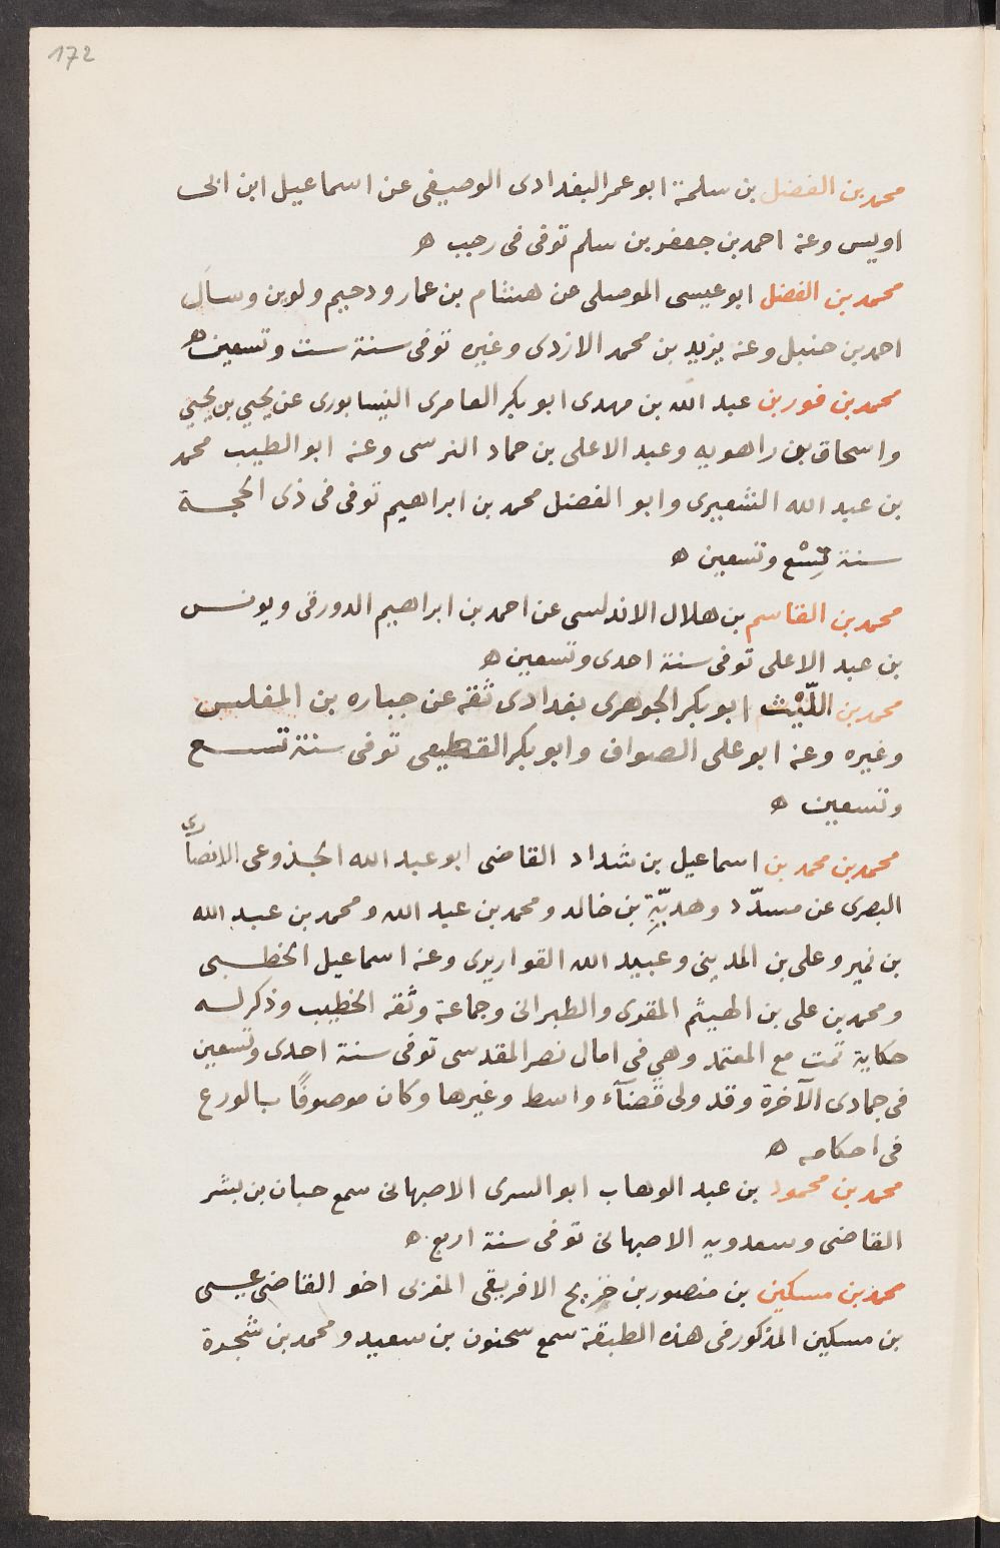 172
محمد بن الفضل بن سلمة ابو عمر البغدادى الوصيفى عن اسماعيل ابن ابى
اويس وعنه احمد بن جعفر بن سلم توفى فى رجب ه
محمد بن الفضل ابو عيسى الموصلى عن هشام بن عمار ودحيم ولوين وسأل
احمد بن حنبل وعنه يزيد بن محمد الازدى وغيره توفى سنة ست وتسعين ه
محمد بن فور بن عبد الله بن مهدى ابو بكر العامرى النيسابورى عن يحيي بن يحيي
واسحاق بن راهويه وعبد الاعلى بن حماد النرسى وعنه ابو الطيب محمد
بن عبد الله الشعيرى وابو الفضل محمد بن ابراهيم توفى فى ذى الحجة
سنة تِسْع وتسعين ه
محمد بن القاسم بن هلال الاندلسى عن احمد بن ابراهيم الدورقى ويونس
بن عبد الاعلى توفى سنة احدى وتسعين ه
محمد بن اللّيْث ابو بكر الجوهرى بغدادى ثقة عن جباره بن المغلس
وغيره وعنه ابو على الصواف وابو بكر القطيعى توفى سنة تسع
وتسعين ه
محمد بن محمد بن اسماعيل بن شداد القاضى ابو عبد الله الجذوعى الانصارى
البصرى عن مسدّد وهدبّةِ بن خالد ومحمد بن عبد الله ومحمد بن عبد الله
بن نمير وعلى بن المدينى وعبيد الله القواريرى وعنه اسماعيل الخطبى
ومحمد بن على بن الهيثم المقرى والطبرانى وجماعة وثقه الخطيب وذكر له
حكاية تمت مع المعتمد وهي فى امال نصر المقدسى توفى سنة احدى وتسعين
فى جمادى الآخرة وقد ولى قضآء واسط وغيرها وكان موصوفًا بالورع
فى احكامه ه
محمد بن محمود بن عبد الوهاب ابو السرى الاصبهانى سمع حبان بن بشر
القاضى وسعدويه الاصبهانى توفى سنة اربع ه
محمد بن مسكين بن منصور بن خريج الافريقى المغربى اخو القاضى عيسى
بن مسكين المذكور فى هذه الطبقة سمع سحنون بن سعيد ومحمد بن شجرة